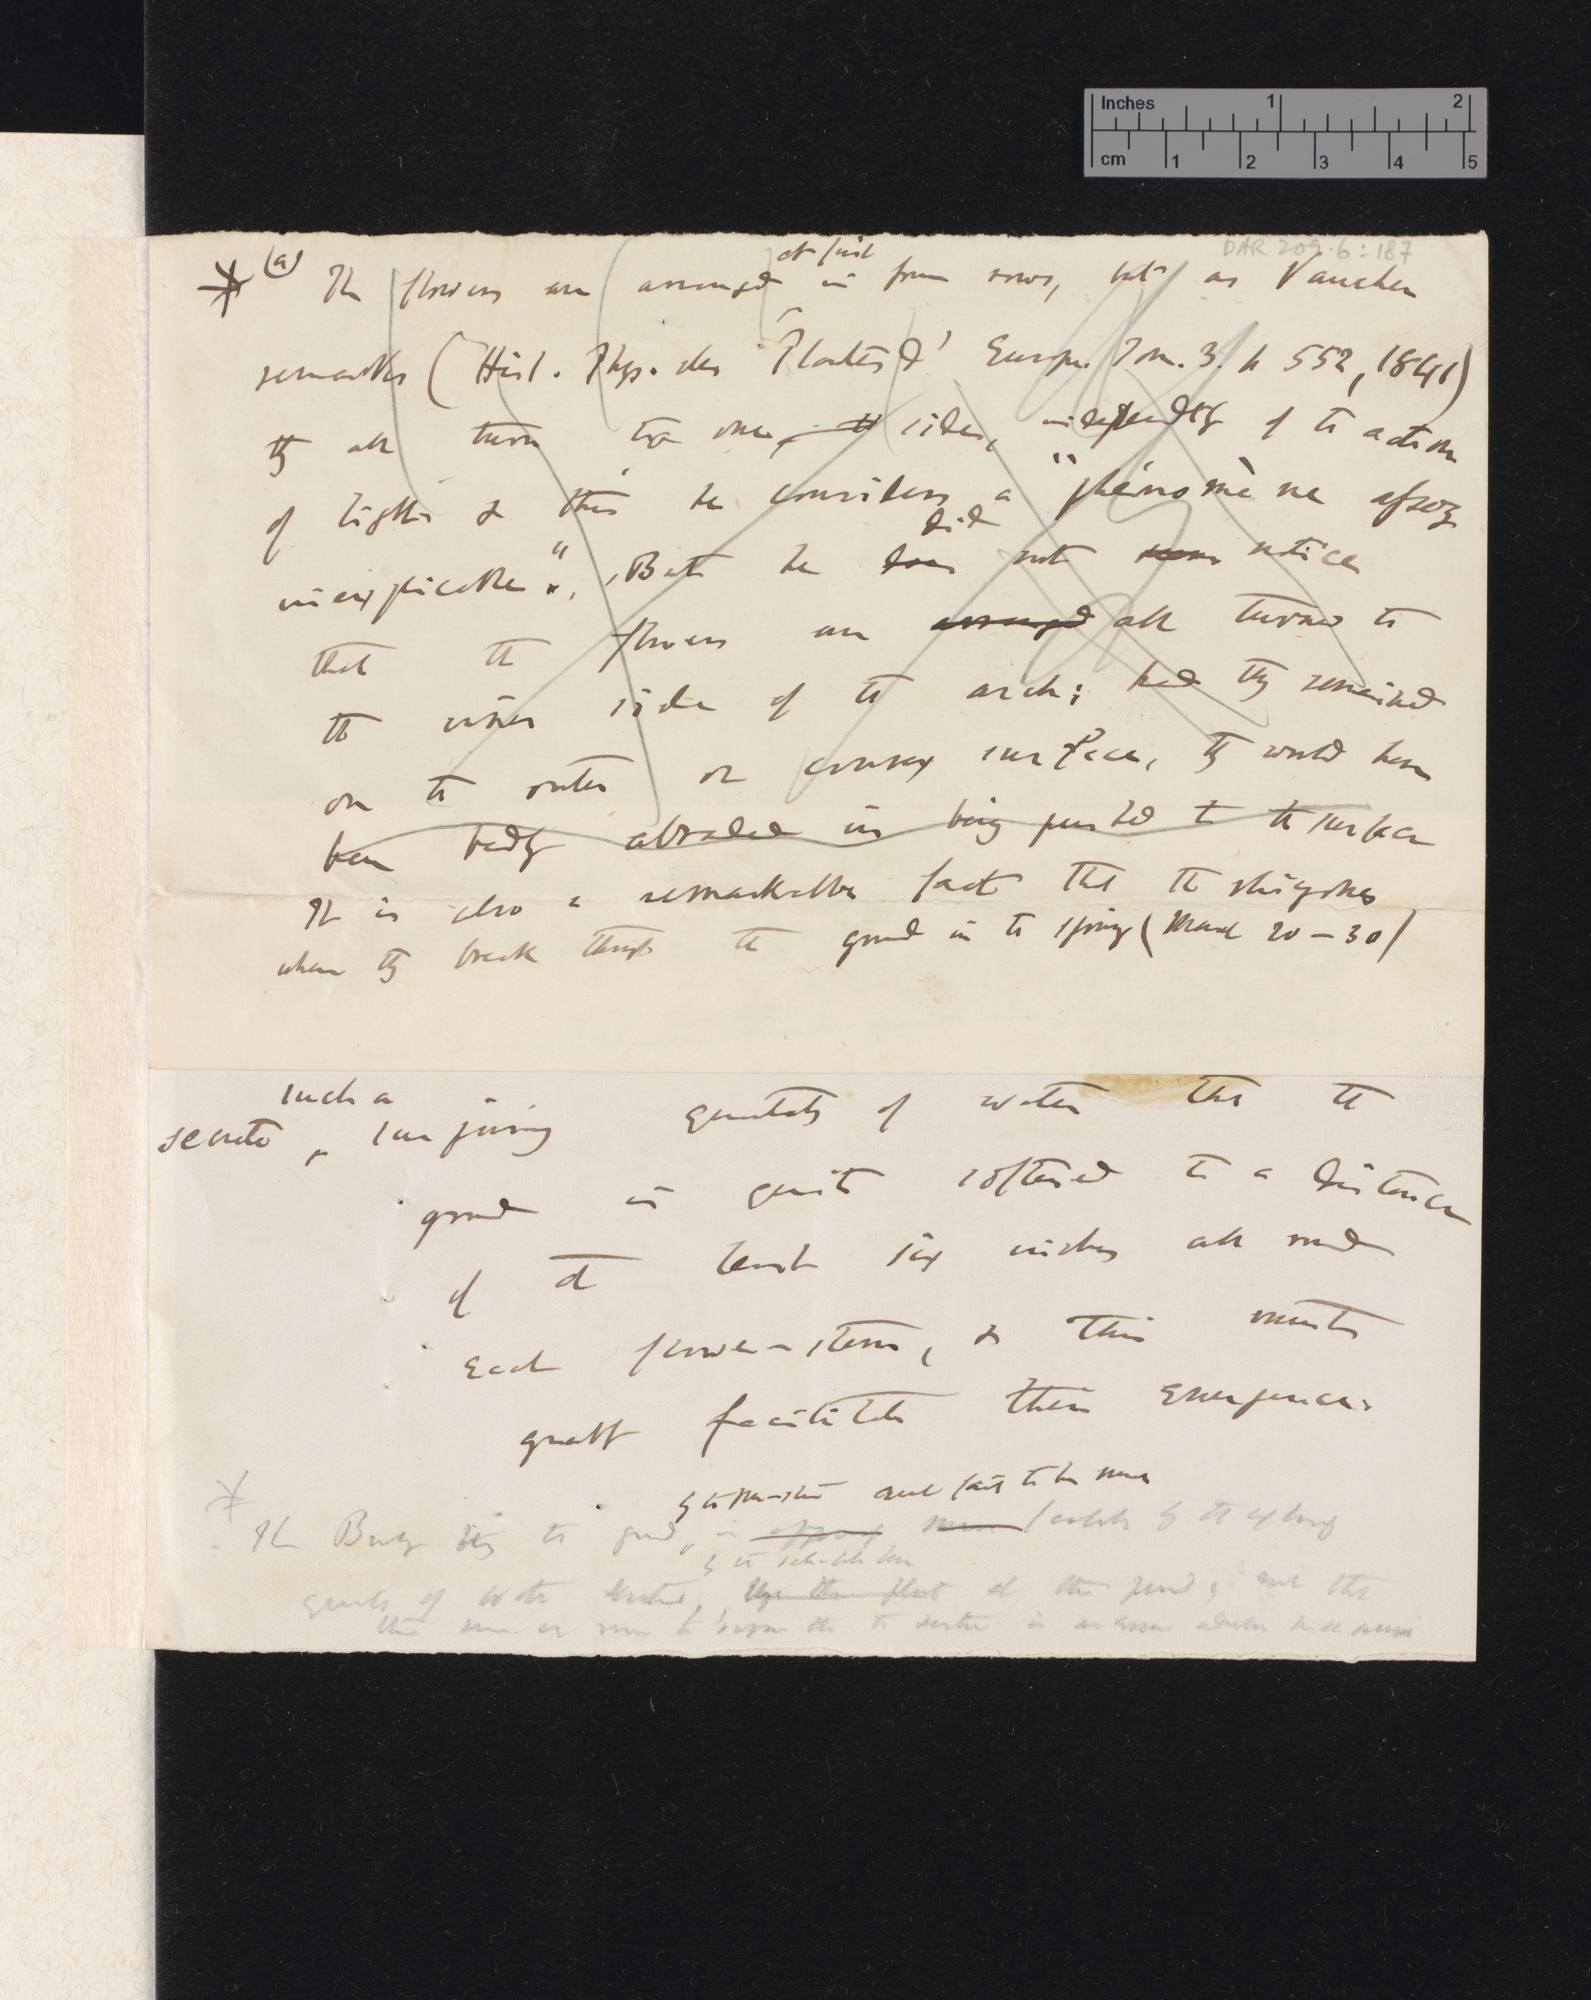 Inches 1 2
cm 1 2 3 4 5
DAR 209.6:187
at first
(a) The flowers are arranged in four rows, but as Vaucher
remarks (Hist. Phys. des Plantes d' Europe. Tom. 3. p 552, 1841)
they all turn to one side, independently of the action
of light & this he considers a "phénomène assez
did
inexplicable". But he does not notice
that the flowers are arranged all turned to
the inner side of the arch; had they remained
on the outer or convex surface, they would have
been badly abraded in being pushed to the surface
It is also a remarkable fact that the
when they break through the ground in the spring (March 20–30)
such a
secrete surprising quantity of water that the
ground is quite softened to a distance
of at least six inches all round
each flower-stem, & this must
greatly facilitate their emergence.
The Body the ground, is
quantity of water secreted, at the